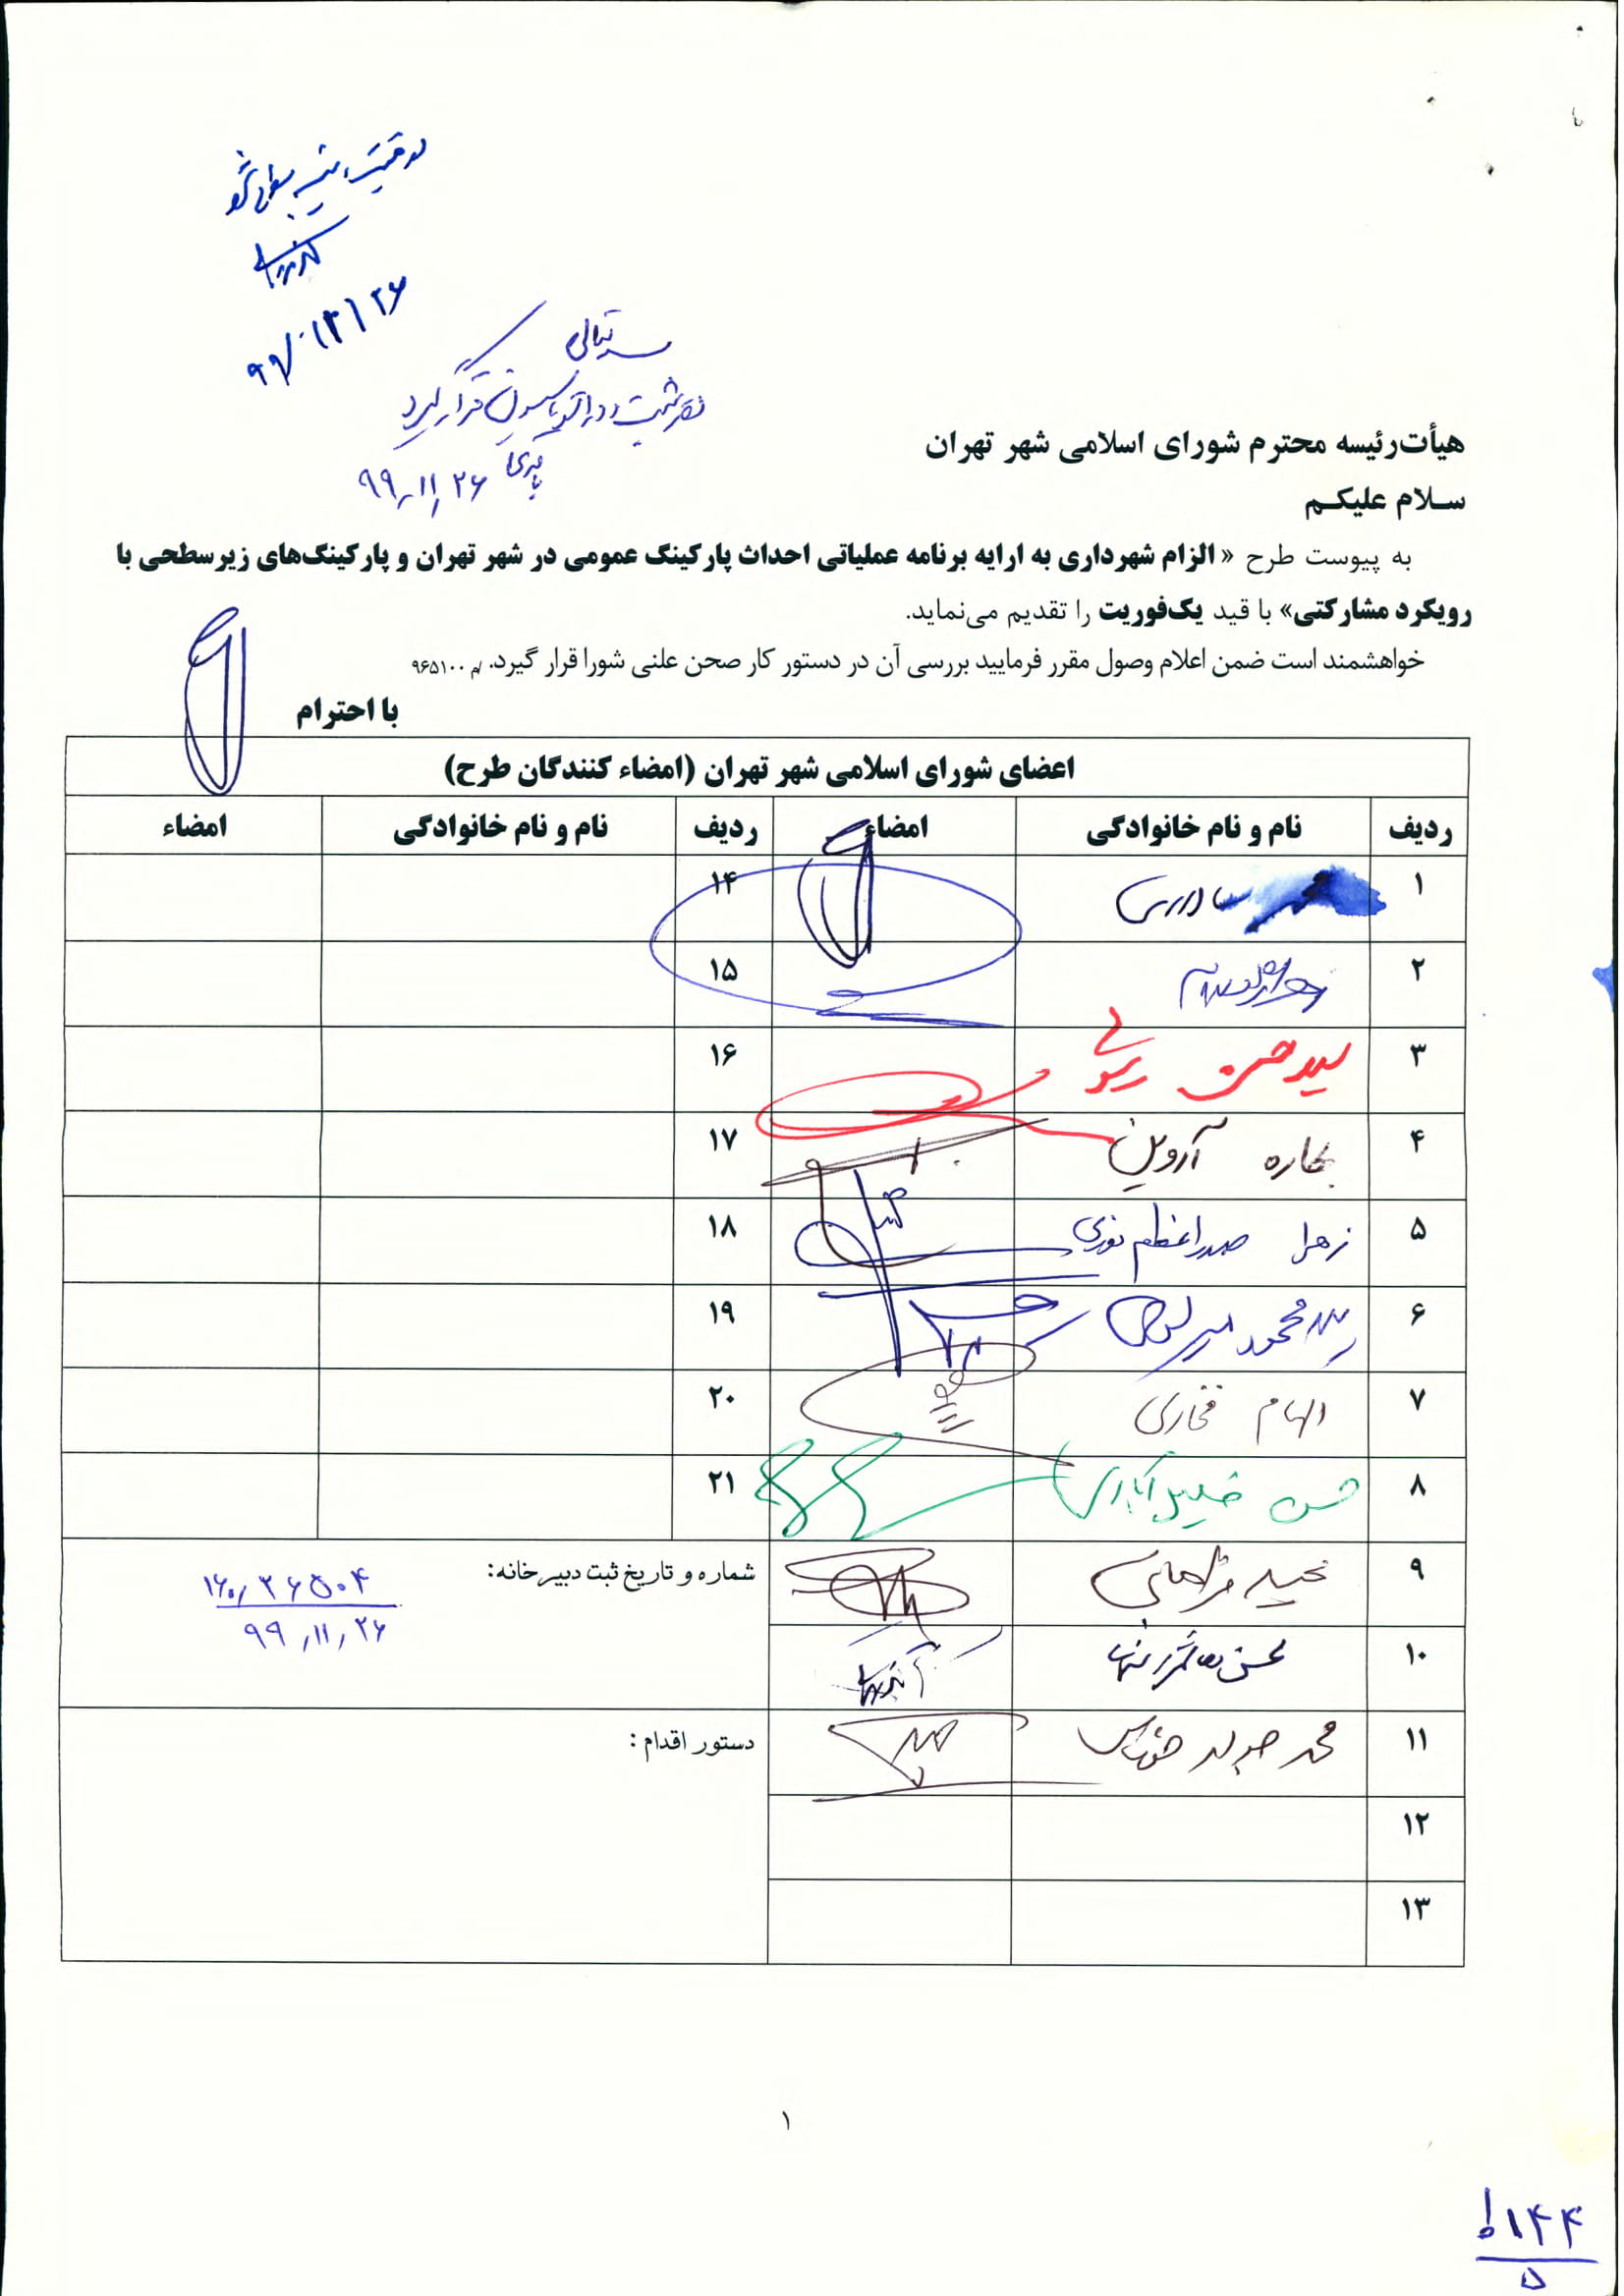 بسمه تعالی
۹۹/۱۱/۲۶
هیأت‌رئیسه محترم شورای اسلامی شهر تهران
سـلام علیکـم
به پیوست طرح « الزام شهرداری به ارایه برنامه عملیاتی احداث پارکینگ عمومی در شهر تهران و پارکینگ‌های زیرسطحی با
رویکرد مشارکتی» با قید یک‌فوریت را تقدیم می‌نماید.
خواهشمند است ضمن اعلام وصول مقرر فرمایید بررسی آن در دستور کار صحن علنی شورا قرار گیرد. /م ۹۶۵۱۰۰
با احترام
اعضای شورای اسلامی شهر تهران (امضاء کنندگان طرح)
ردیف نام و نام خانوادگی امضاء ردیف نام و نام خانوادگی امضاء
۱ ۱۴
۲ ۱۵
۳ سید حسن رسولی ۱۶
۴ بهاره آروین ۱۷
۵ زهرا صدراعظم نوری ۱۸
۶ سید محمود میرلوحی ۱۹
۷ الهام فخاری ۲۰
۸ حسن خلیل آبادی ۲۱
۹ مجید فراهانی شماره و تاریخ ثبت دبیرخانه: ۱۶۰/۳۶۵۰۴
۹۹/۱۱/۲۶
۱۰ محسن هاشمی رفسنجانی
۱۱ محمد جواد حق شناس دستور اقدام :
۱۲
۱۳
۱
۵